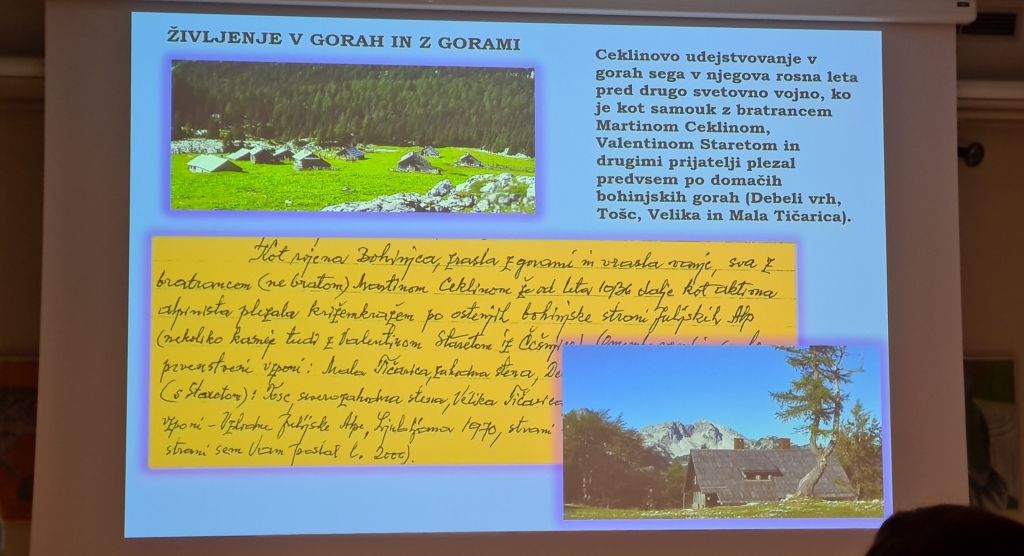 ŽIVLJENJE V GORAH IN Z GORAMI
Ceklinovo udejstvovanje v
gorah sega v njegova rosna leta
pred drugo svetovno vojno, ko
je kot samouk z bratrancem
Martinom Ceklinom,
Valentinom Staretom in
drugimi prijatelji plezal
predvsem po domačih
bohinjskih gorah (Debeli vrh,
Tošc, Velika in Mala Tičarica).
Kot rojena Bohinjca, zrasla z gorami in vrasla vanje, sva z
bratrancem (ne bratom) Martinom Ceklinom že od leta 1936 dalje kot aktivna
alpinista plezala križemkražem po ostenjih bohinjske strani Julijskih Alp
(nekoliko kasneje tudi z Valentinom Staretom iz
prvenstveni vzponi: Mala Tičarica, zahodna stena, De
(s Staretom): Tosc, severozahodna stena, Velika Tičarica
vzponi - Vzhodne Julijske Alpe, Ljubljana 1970, strani
strani sem Vam poslal l. 2000).